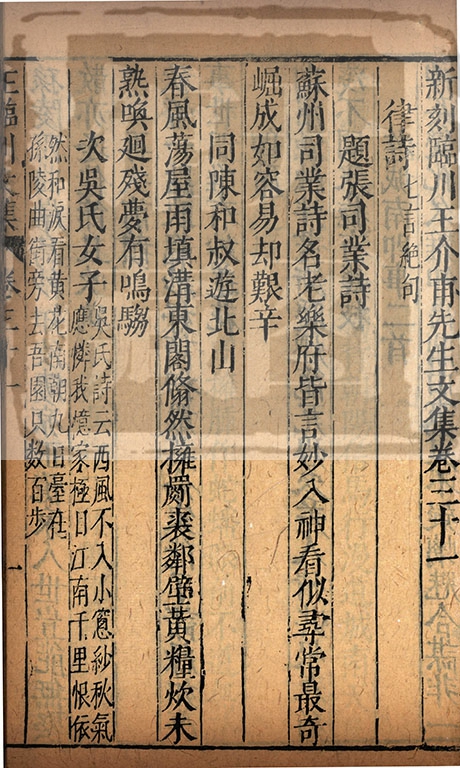 新刻臨川王介甫先生文集卷三十一
律詩 七言絕句
題張司業詩
蘇州司業詩名老樂府皆言妙入神看似尋常最奇
崛成如容易却艱辛
同陳和叔遊北山
春風蕩屋雨填溝東閣翛然擁罽裘鄰壁黃糧炊未
熟喚廻殘夢有鳴騶
次吳氏女子 吳氏詩云西風不入小窻紗秋氣
應憐我憶家極目江南千里恨依
然和淚看黃花南朝九日臺在
孫陵曲街旁去吾園只數百步
王臨川文集 卷三十一 一